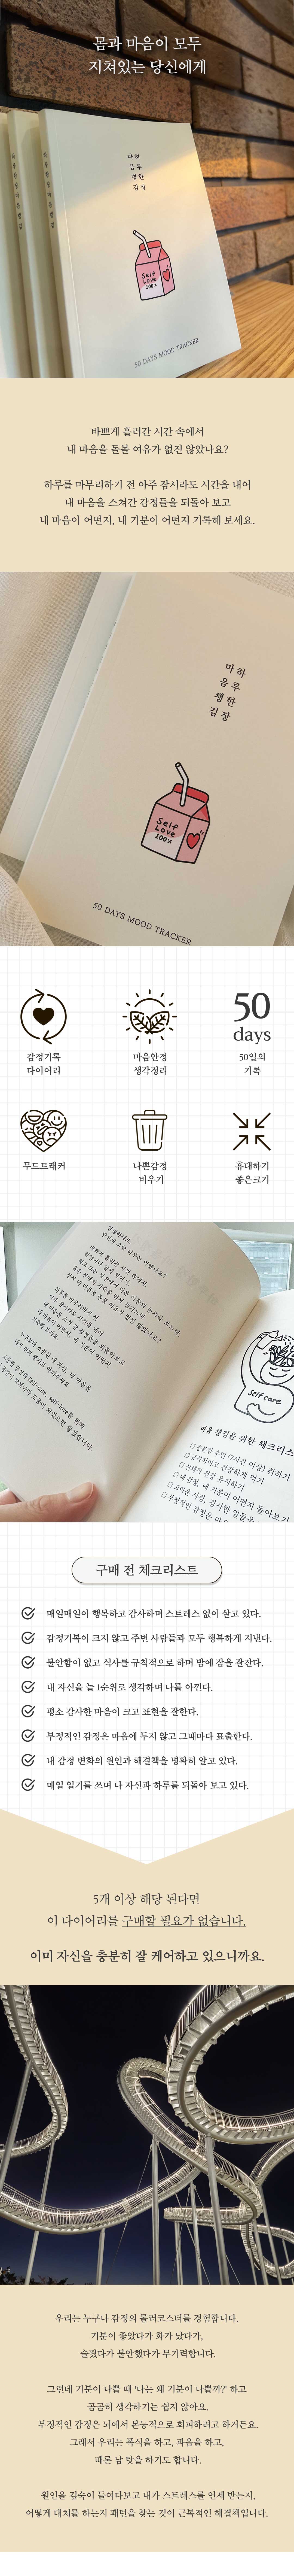 몸과 마음이 모두
지쳐있는 당신에게
마하
음루
챙한
김장
Self
Love
100%
50 DAYS MOOD TRACKER
바쁘게 흘러간 시간 속에서
내 마음을 돌볼 여유가 없진 않았나요?
하루를 마무리하기 전 아주 잠시라도 시간을 내어
내 마음을 스쳐간 감정들을 되돌아 보고
내 마음이 어떤지, 내 기분이 어떤지 기록해 보세요.
마하
음루
챙한
김장
Self
Love
100%
50 DAYS MOOD TRACKER
감정기록
다이어리
마음안정
생각정리
50
days
50일의
기록
무드트래커
나쁜감정
비우기
휴대하기
좋은크기
안녕하세요.
당신의 오늘 하루는 어땠나요?
바쁘게 흘러간 시간 속에서,
Self care
마음 챙김을 위한 체크리스
□ 충분한 수면 (7시간 이상) 취하기
□ 규칙적이고 건강하게 먹기
□ 신체적 건강 유지하기
□ 내 감정, 내 기분이 어떤지 돌아보기
□ 고마운 사람, 감사한 일들을
□ 부정적인 감정은
구매 전 체크리스트
매일매일이 행복하고 감사하며 스트레스 없이 살고 있다.
감정기복이 크지 않고 주변 사람들과 모두 행복하게 지낸다.
불안함이 없고 식사를 규칙적으로 하며 밤에 잠을 잘잔다.
내 자신을 늘 1순위로 생각하며 나를 아낀다.
평소 감사한 마음이 크고 표현을 잘한다.
부정적인 감정은 마음에 두지 않고 그때마다 표출한다.
내 감정 변화의 원인과 해결책을 명확히 알고 있다.
매일 일기를 쓰며 나 자신과 하루를 되돌아 보고 있다.
5개 이상 해당 된다면
이 다이어리를 구매할 필요가 없습니다.
이미 자신을 충분히 잘 케어하고 있으니까요.
우리는 누구나 감정의 롤러코스터를 경험합니다.
기분이 좋았다가 화가 났다가,
슬펐다가 불안했다가 무기력합니다.
그런데 기분이 나쁠 때 '나는 왜 기분이 나쁠까?' 하고
곰곰히 생각하기는 쉽지 않아요.
부정적인 감정은 뇌에서 본능적으로 회피하려고 하거든요.
그래서 우리는 폭식을 하고, 과음을 하고,
때론 남 탓을 하기도 합니다.
원인을 깊숙이 들여다보고 내가 스트레스를 언제 받는지,
어떻게 대처를 하는지 패턴을 찾는 것이 근복적인 해결책입니다.